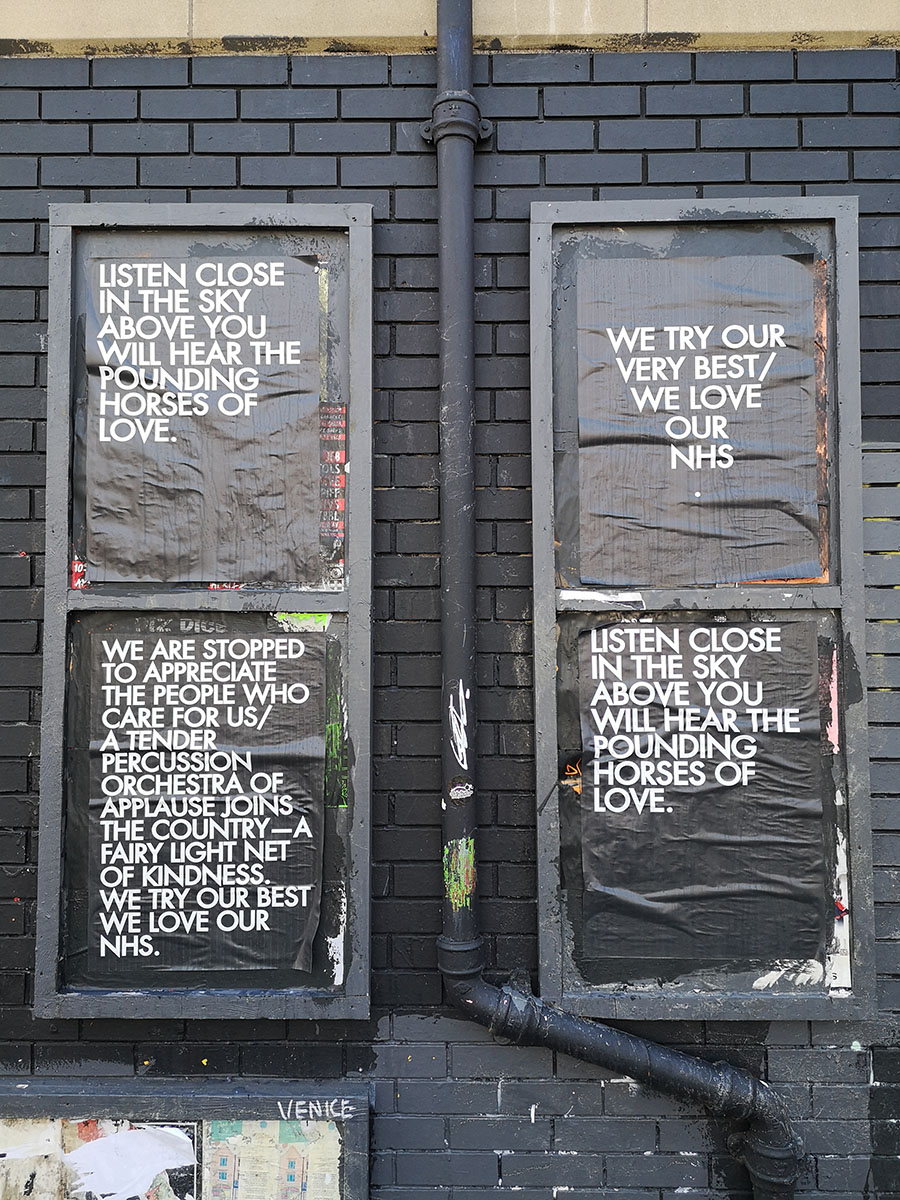 LISTEN CLOSE
IN THE SKY
ABOVE YOU
WILL HEAR THE
POUNDING
HORSES OF
LOVE.
WE ARE STOPPED
TO APPRECIATE
THE PEOPLE WHO
CARE FOR US/
A TENDER
PERCUSSION
ORCHESTRA OF
APPLAUSE JOINS
THE COUNTRY—A
FAIRY LIGHT NET
OF KINDNESS.
WE TRY OUR BEST
WE LOVE OUR
NHS.
WE TRY OUR
VERY BEST/
WE LOVE
OUR
NHS
.
LISTEN CLOSE
IN THE SKY
ABOVE YOU
WILL HEAR THE
POUNDING
HORSES OF
LOVE.
VENICE